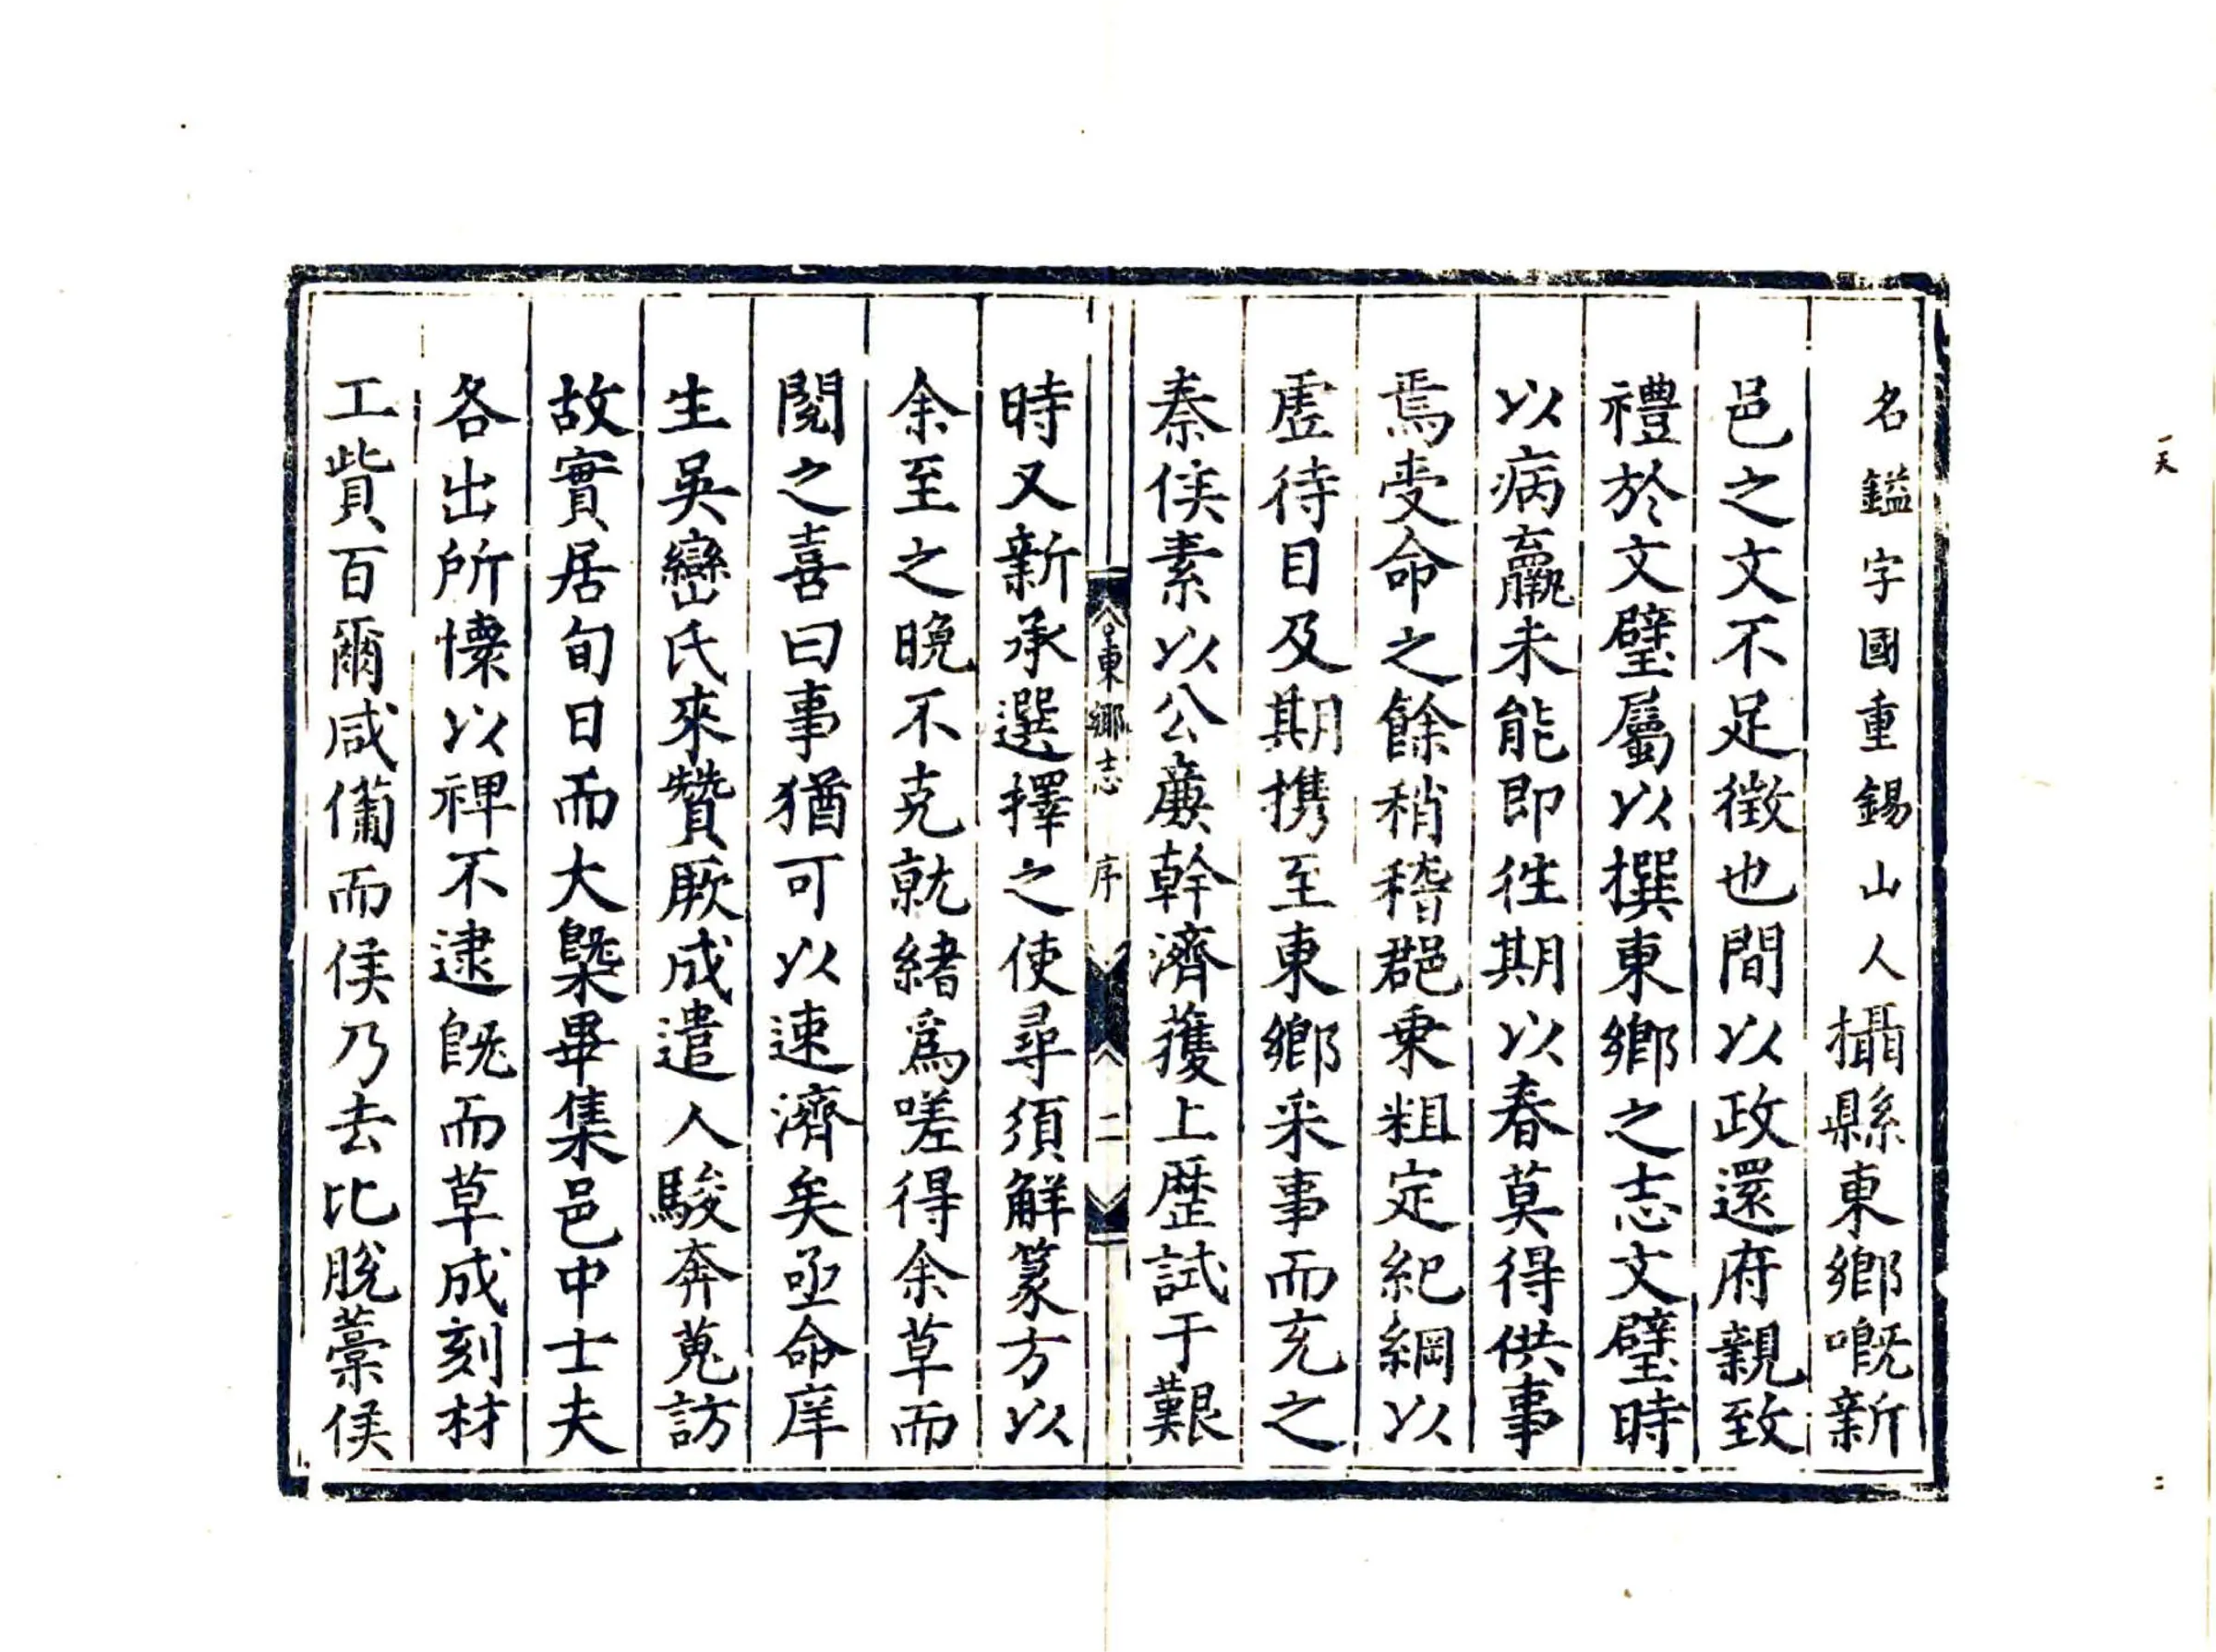 名鎰字國重錫山人攝縣東鄉嘅新
邑之文不足徵也間以政還府親致
禮於文璧屬以撰東鄉之志文璧時
以病羸未能即徃期以春莫得供事
焉受命之餘稍稽郡乗粗定紀綱以
虛待目及期携至東鄉采事而充之
秦侯素以公廉幹濟獲上歷試于艱
東鄉志 序 二
時又新承選擇之使尋須解篆方以
余至之晚不克就緒爲嗟得余草而
閱之喜曰事猶可以速濟矣亟命庠
生吳巒氏來贊厥成遣人駿奔蒐訪
故實居旬日而大槩畢集邑中士夫
各出所懐以裨不逮旣而草成刻材
工貲百爾咸備而侯乃去比脫藁侯